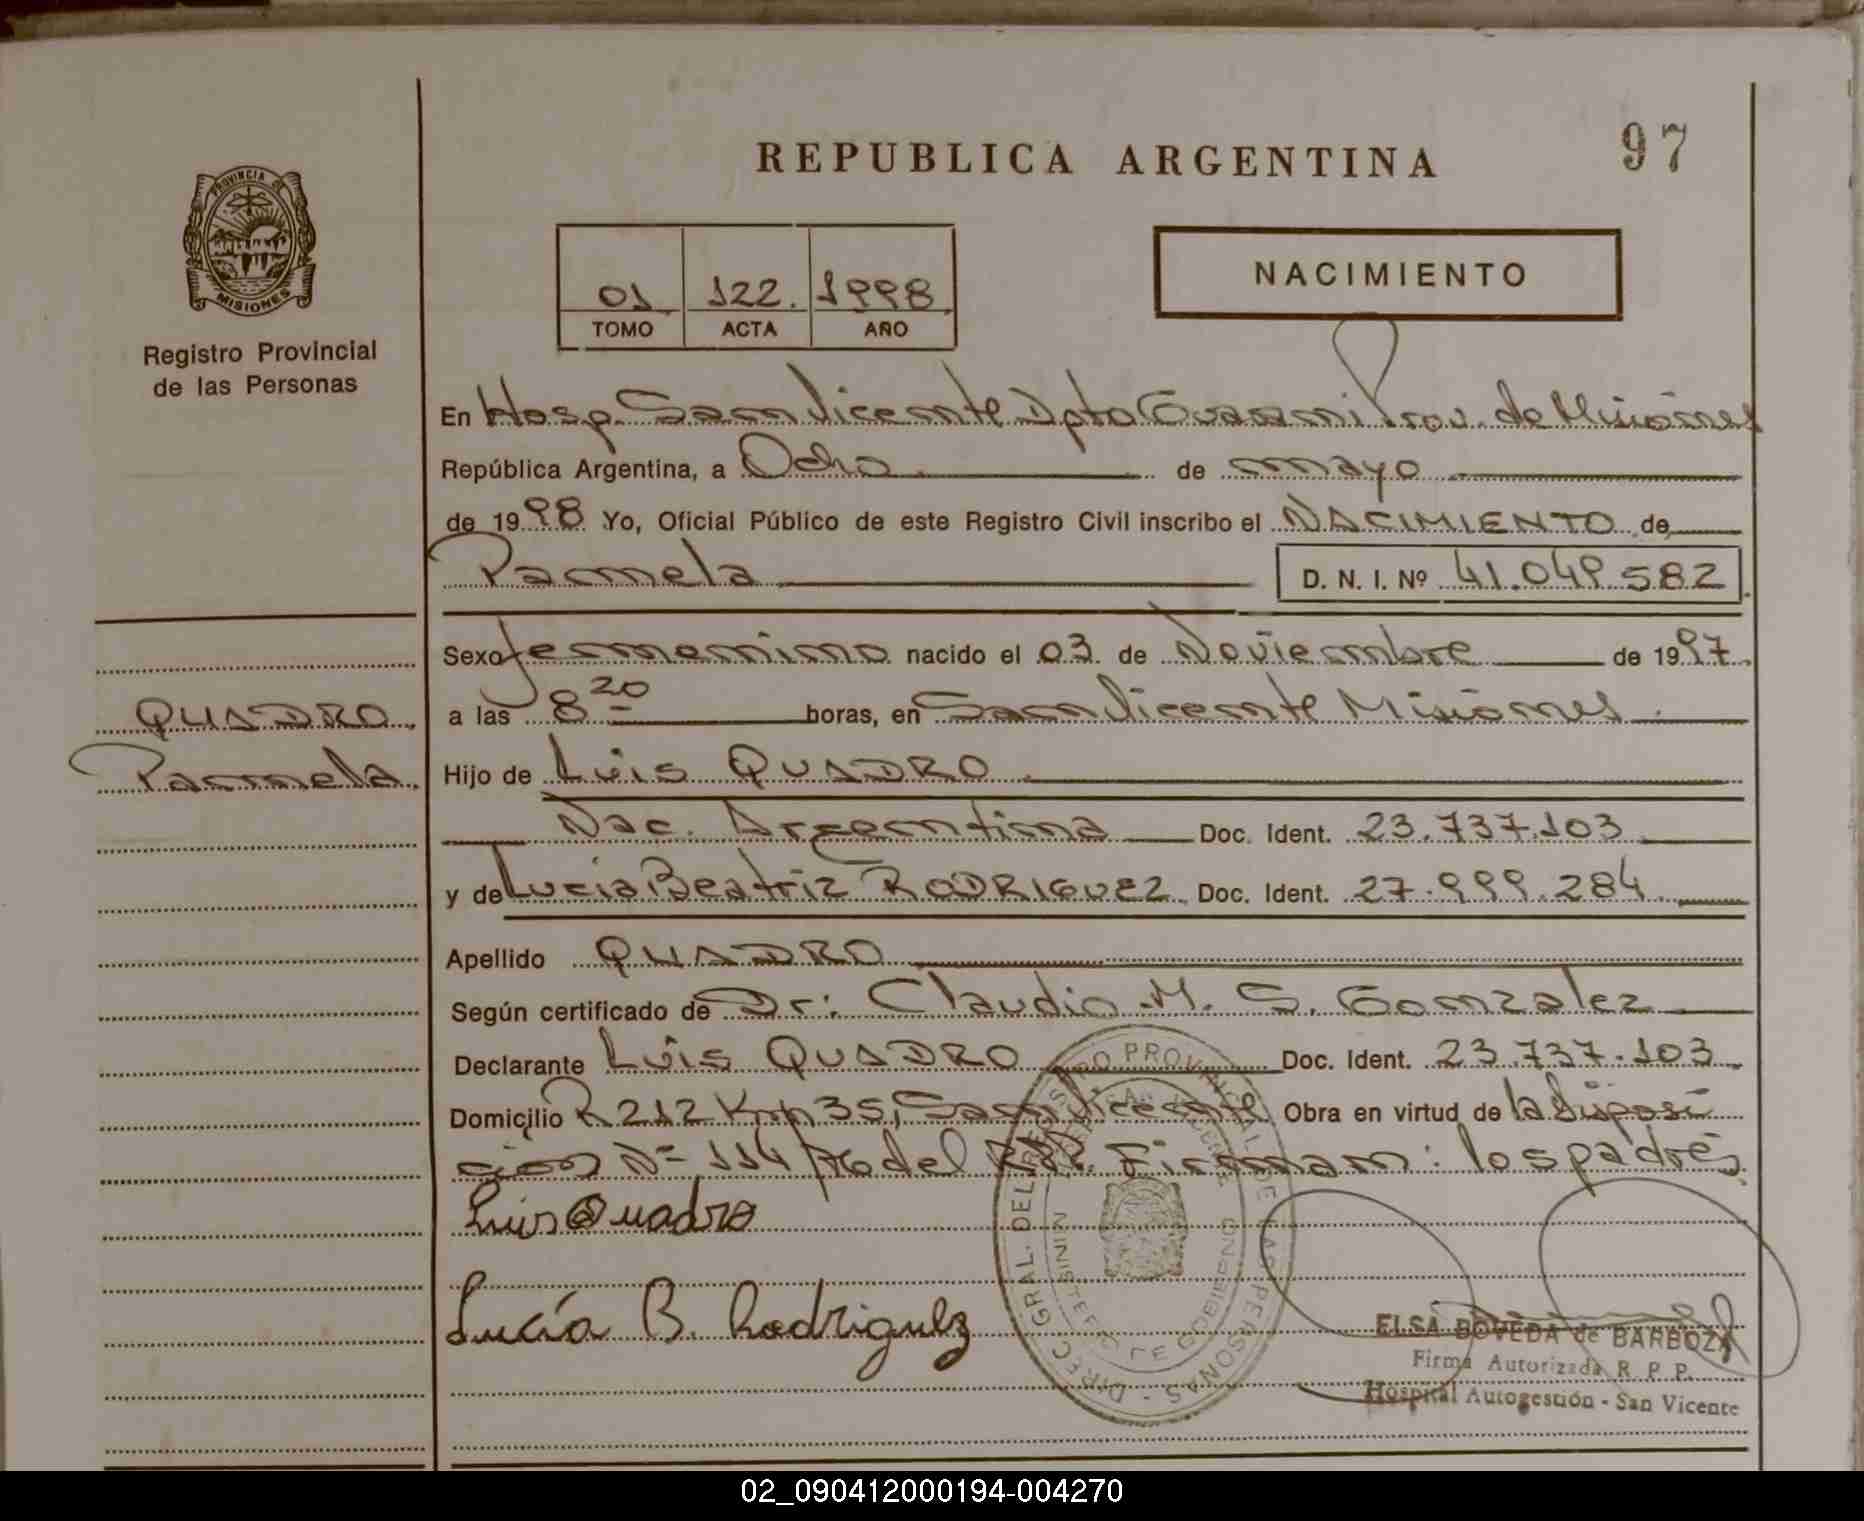 REPUBLICA ARGENTINA
97
PROVINCIA DE
MISIONES
Registro Provincial
de las Personas
01 122. 1998
TOMO ACTA AÑO
NACIMIENTO
En Hosp. San Vicente Dpto Guarani Prov. de Misiones
República Argentina, a Ocho de mayo
de 1998 Yo, Oficial Público de este Registro Civil inscribo el NACIMIENTO de
Pamela D. N. I. Nº 41.049.582
Sexo femenino nacido el 03 de Noviembre de 1997.
a las 8 20 horas, en San Vicente Misiones
Hijo de Luis QUADRO
Nac. Argentina Doc. Ident. 23.737.103
y de Lucia Beatriz RODRIGUEZ Doc. Ident. 27.999.284
Apellido QUADRO
Según certificado de Dr: Claudio M. S. Gonzalez
Declarante Luis QUADRO Doc. Ident. 23.737.103
Domicilio R 212 Km 35, San Vicente Obra en virtud de la Disposi
cion Nº 114/ del R.P.P. Firman: los padres
Luis Quadro
Lucía B. Rodriguez
QUADRO
Pamela
DIREC. GRAL. DEL REGISTRO PROVINCIAL DE LAS PERSONAS
MINISTERIO DE GOBIERNO
ELSA BOVEDA de BARBOZA
Firma Autorizada R. P. P.
Hospital Autogestión - San Vicente
02_090412000194-004270